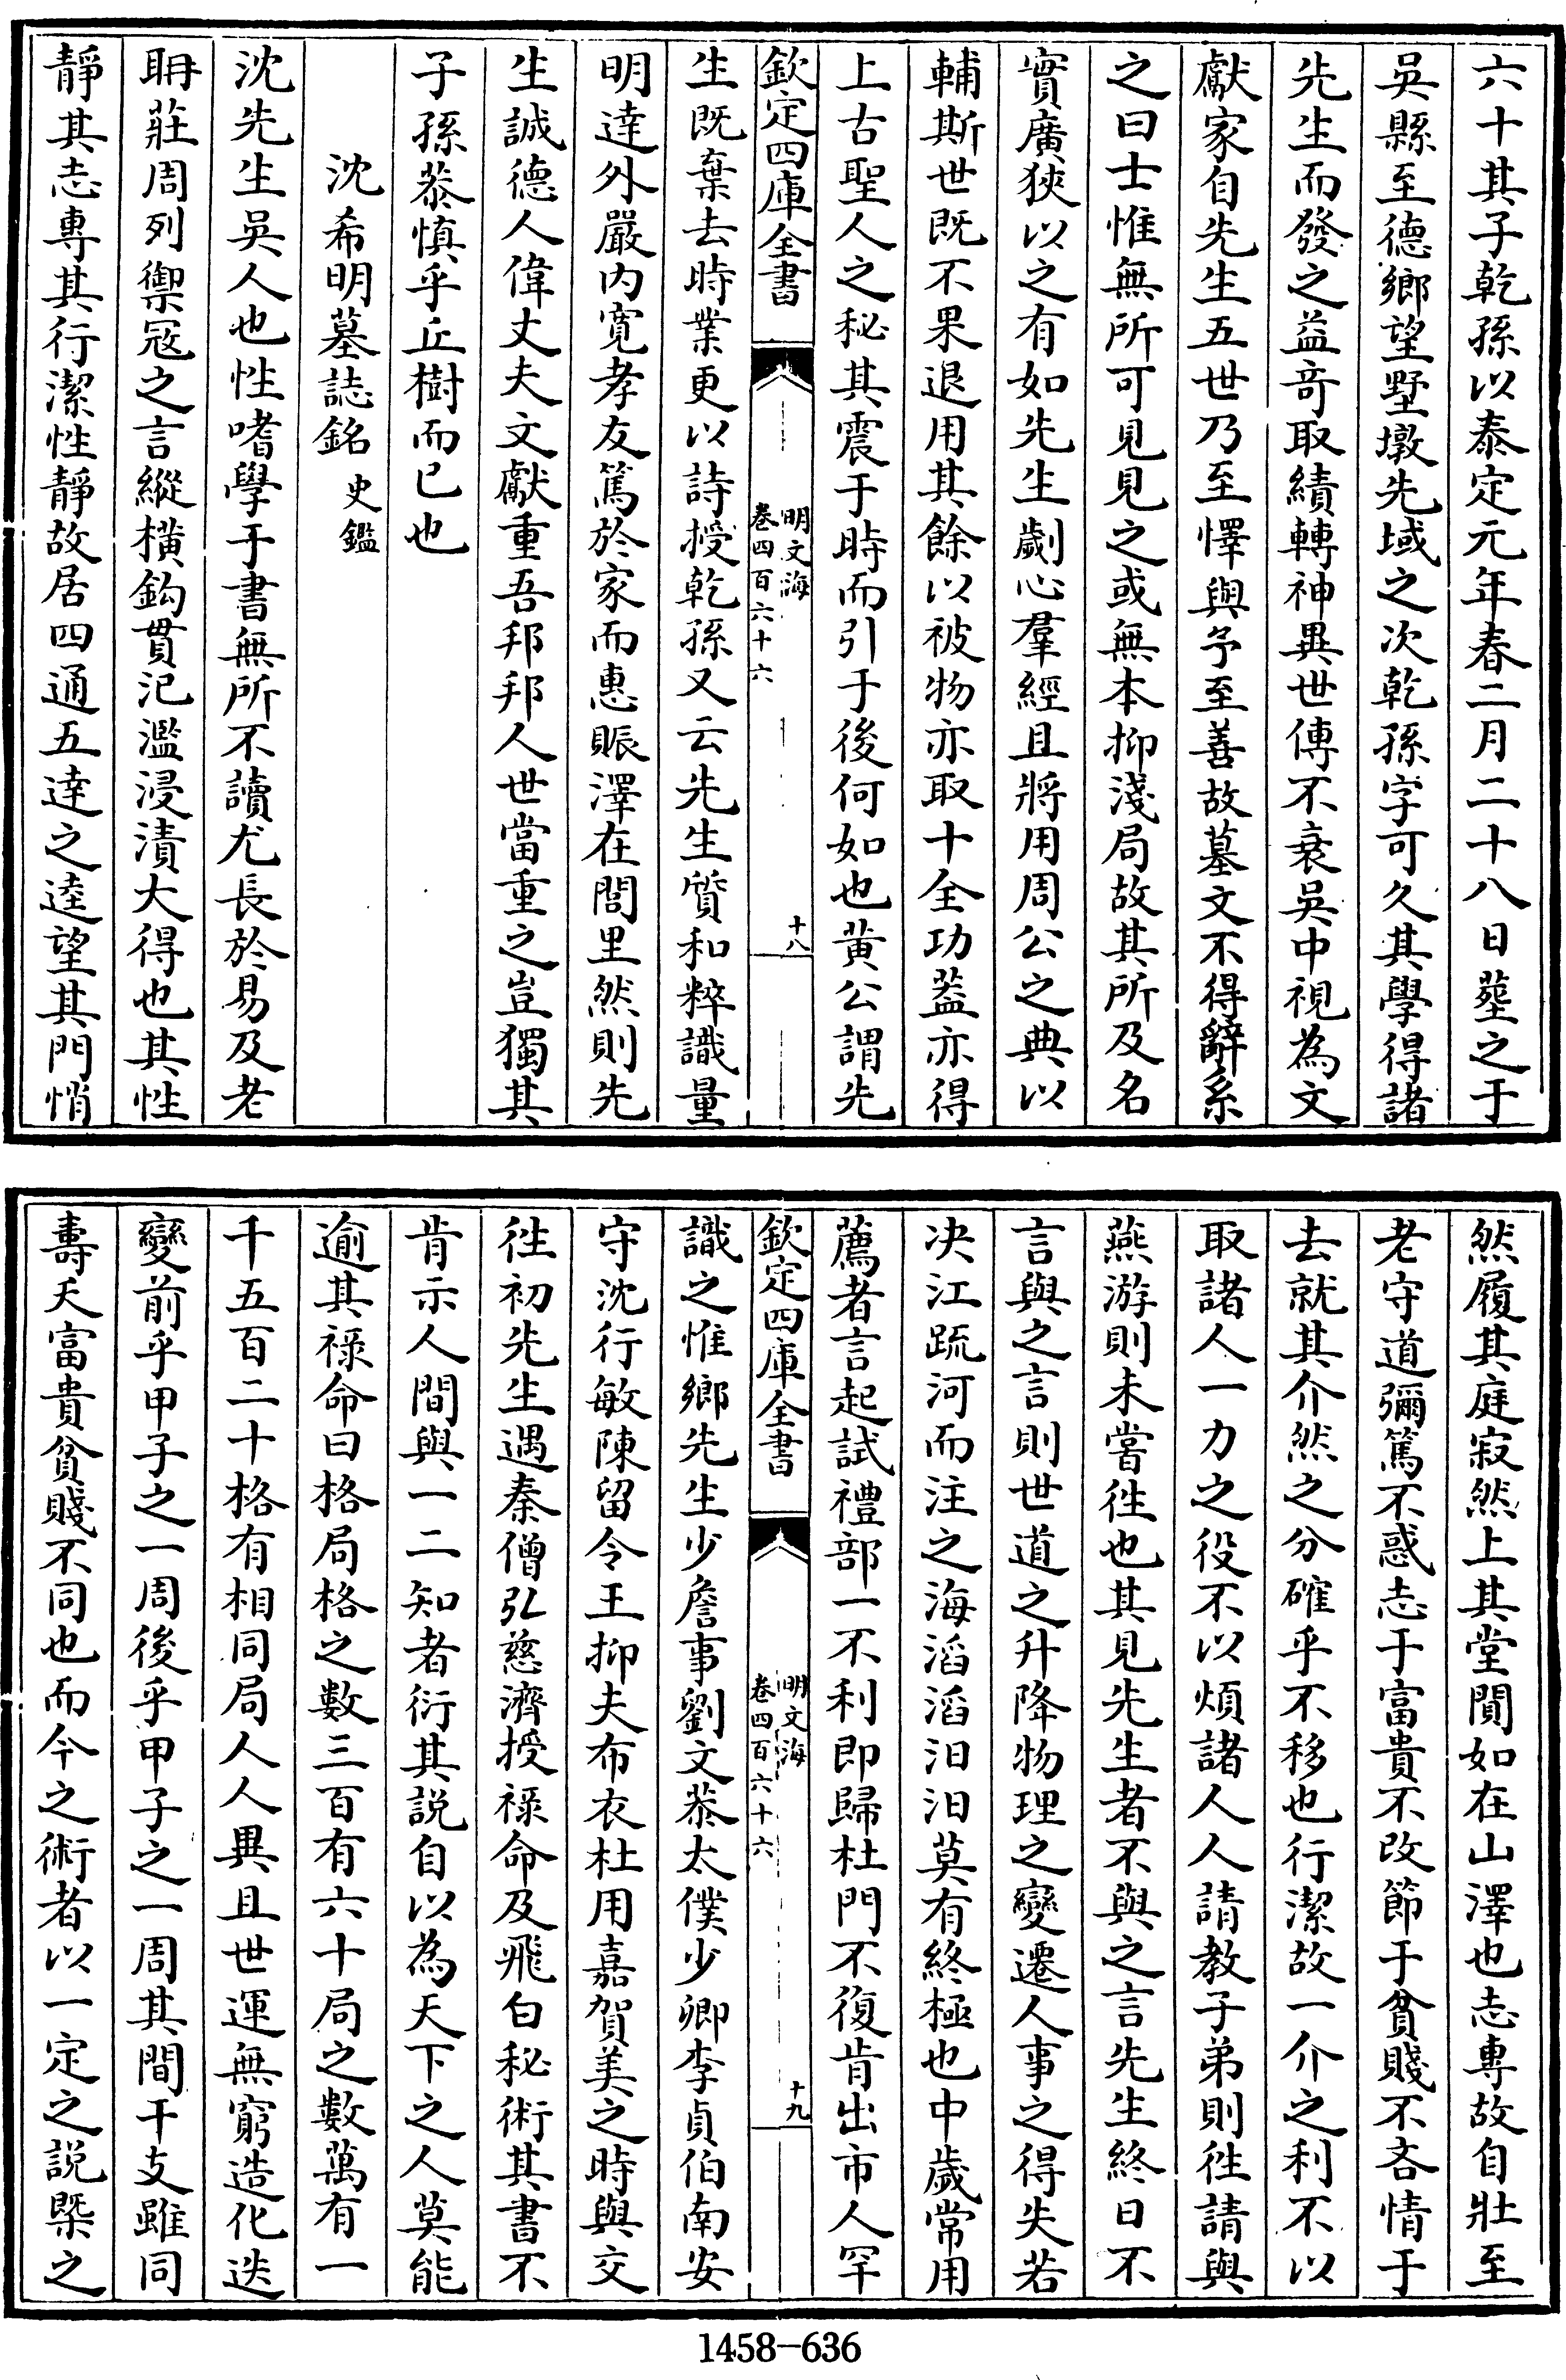 六十其子乾孫以泰定元年春二月二十八日塟之于
吳縣至德鄉望墅墩先域之次乾孫字可久其學得諸
先生而發之益奇取績轉神異世傳不衰吳中視為文
獻家自先生五世乃至懌與予至善故墓文不得辭系
之曰士惟無所可見見之或無本抑淺局故其所及名
實廣狹以之有如先生劌心羣經且將用周公之典以
輔斯世既不果退用其餘以被物亦取十全功葢亦得
上古聖人之秘其震于時而引于後何如也黃公謂先
欽定四庫全書
明文海
卷四百六十六
十八
生既棄去時業更以詩授乾孫又云先生質和粹識量
明達外嚴內寬孝友篤於家而惠賑澤在閭里然則先
生誠德人偉丈夫文獻重吾邦邦人世當重之豈獨其
子孫恭慎乎丘樹而已也
沈希明墓誌銘 史鑑
沈先生吳人也性嗜學于書無所不讀尤長於易及老
耼莊周列禦寇之言縱橫鈎貫汜濫浸漬大得也其性
靜其志專其行潔性靜故居四通五達之逵望其門悄
然履其庭寂然上其堂閴如在山澤也志專故自壯至
老守道彌篤不惑志于富貴不改節于貧賤不吝情于
去就其介然之分確乎不移也行潔故一介之利不以
取諸人一力之役不以煩諸人人請教子弟則徃請與
燕游則未嘗徃也其見先生者不與之言先生終日不
言與之言則世道之升降物理之變遷人事之得失若
决江疏河而注之海滔滔汩汩莫有終極也中歲常用
薦者言起試禮部一不利即歸杜門不復肯出市人罕
欽定四庫全書
明文海
卷四百六十六
十九
識之惟鄉先生少詹事劉文恭太僕少卿李貞伯南安
守沈行敏陳留令王抑夫布衣杜用嘉賀美之時與交
徃初先生遇秦僧弘慈濟授祿命及飛白秘術其書不
肯示人間與一二知者衍其説自以為天下之人莫能
逾其祿命曰格局格之數三百有六十局之數萬有一
千五百二十格有相同局人人異且世運無窮造化迭
變前乎甲子之一周後乎甲子之一周其間干支雖同
壽夭富貴貧賤不同也而今之術者以一定之説槩之
1458-636